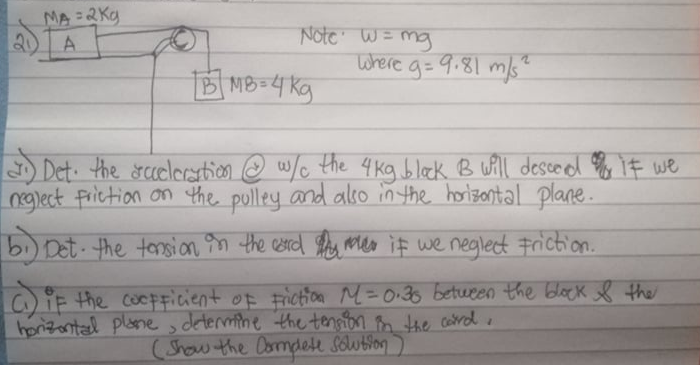 MA = 2Kg
2.) A Note: W = mg
Where g = 9.81 m/s²
B MB = 4 Kg
a.) Det. the acceleration @ w/c the 4kg block B will descend if we
neglect friction on the pulley and also in the horizontal plane.
b.) Det. the tension in the cord if we neglect Friction.
C.) iF the coefficient oF Friction M = 0.30 between the block & the
horizontal plane, determine the tension in the cord.
(Show the Complete Solution)